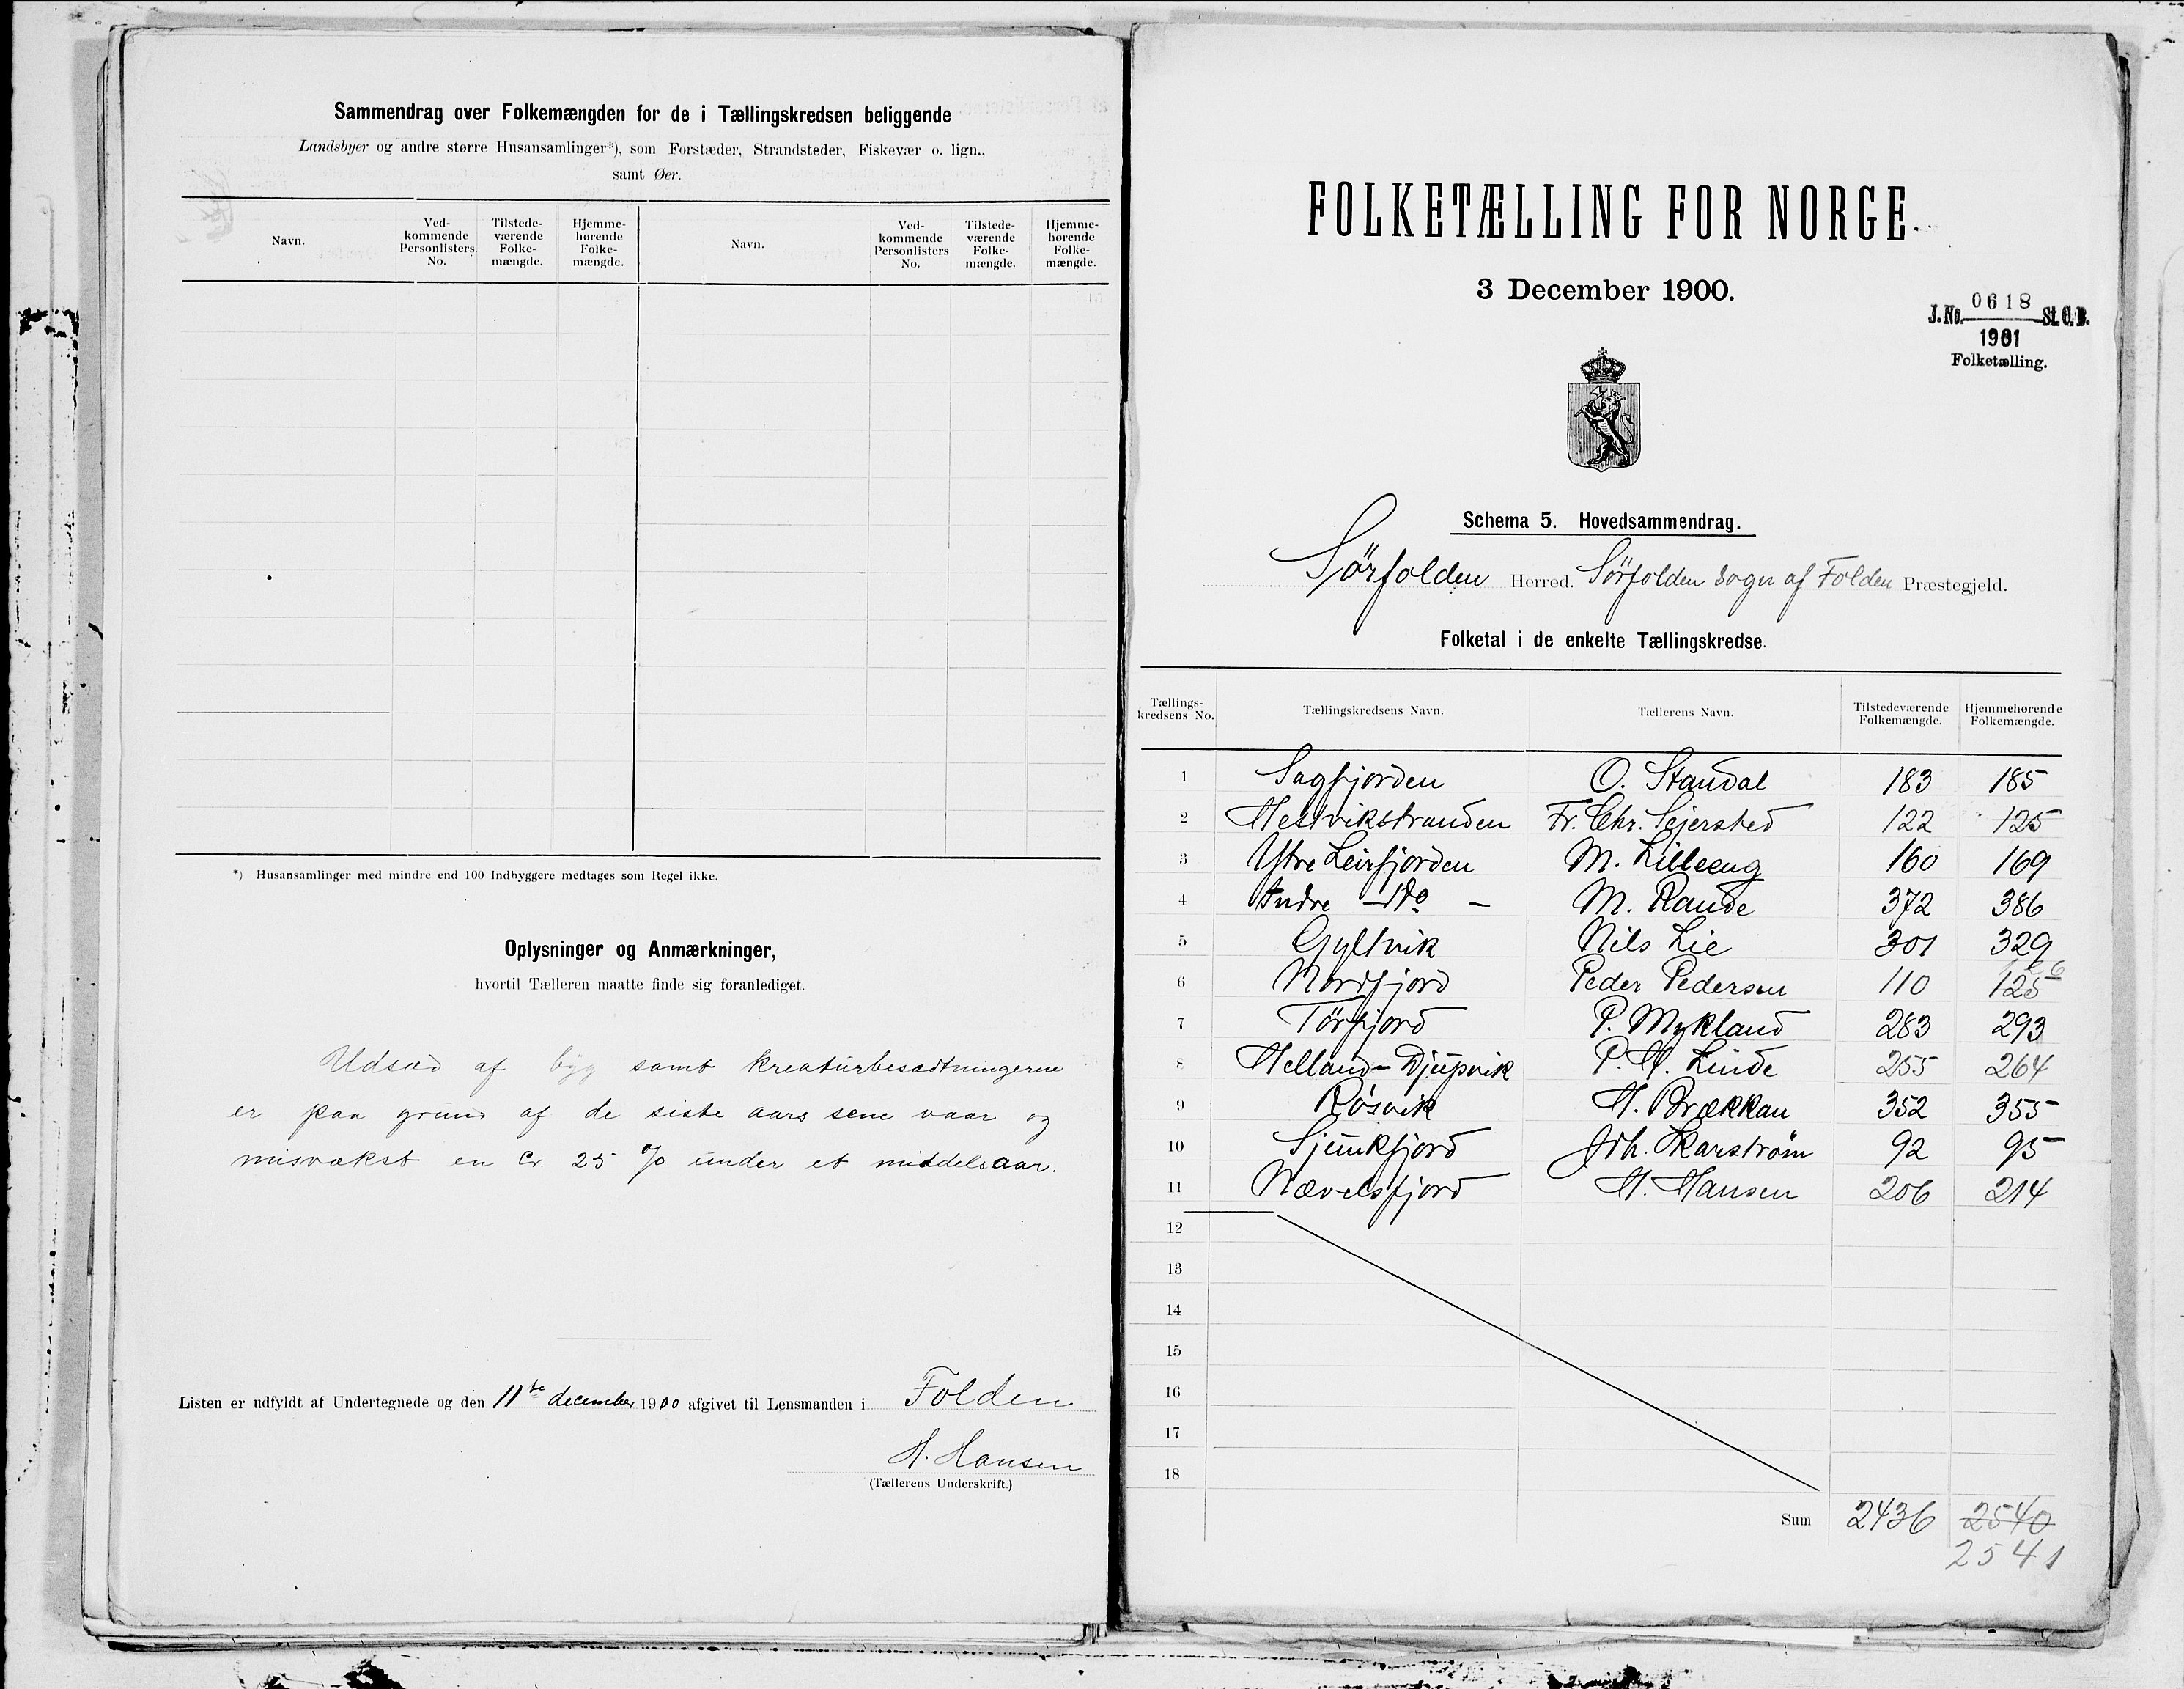 Sammendrag over Folkemængden for de i Tællingskredsen beliggende
Landsbyer og andre større Husansamlinger*), som Forstæder, Strandsteder, Fiskevær o. lign.,
samt Øer.
Navn. Ved-kommende Personlisters No. Tilstede-værende Folke-mængde. Hjemme-hørende Folke-mængde. Navn. Ved-kommende Personlisters No. Tilstede-værende Folke-mængde. Hjemme-hørende Folke-mængde.
*) Husansamlinger med mindre end 100 Indbyggere medtages som Regel ikke.
Oplysninger og Anmærkninger,
hvortil Tælleren maatte finde sig foranlediget.
Udsæd af byg samt kreaturbesætningerne
er paa grund af de siste aars sene vaar og
misvækst en Cr. 25 % under et middelsaar.
Listen er udfyldt af Undertegnede og den 11te december 1900 afgivet til Lensmanden i Folden
H. Hansen
(Tællerens Underskrift.)
FOLKETÆLLING FOR NORGE.
3 December 1900.
J. No. 0618 St. C. B.
1901
Folketælling.
Schema 5. Hovedsammendrag.
Sörfolden Herred. Sörfolden Sogn af Folden Præstegjeld.
Folketal i de enkelte Tællingskredse.
Tællings-kredsens No. Tællingskredsens Navn. Tællerens Navn. Tilstedeværende Folkemængde. Hjemmehørende Folkemængde.
1 Sagfjorden O. Standal 183 185
2 Hestvikstranden Fr. Chr. Sejersted 122 125
3 Ytre Leirfjorden M. Lilleeng 160 169
4 Indre Do - M. Rande 372 386
5 Gyltvik Nils Lie 301 329
6 Nordfjord Peder Pedersen 110 125
7 Törfjord P. Mykland 283 293
8 Helland-Djupvik P. H. Linde 255 264
9 Rösvik H. Brækkan 352 355
10 Sjunkfjord Joh. Skarström 92 95
11 Nævelsfjord H. Hansen 206 214
12
13
14
15
16
17
18
Sum 2436 2540
2541